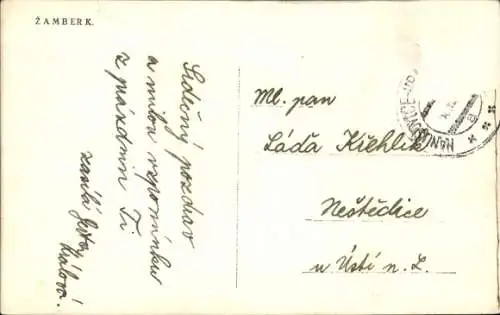 ŽAMBERK.
Srdečný pozdrav
a milou vzpomínku
z prázdnin Ti
zasílá
Králová.
Ml. pan
Láďa Křehlík
Neštědice
u Ústí n. L.